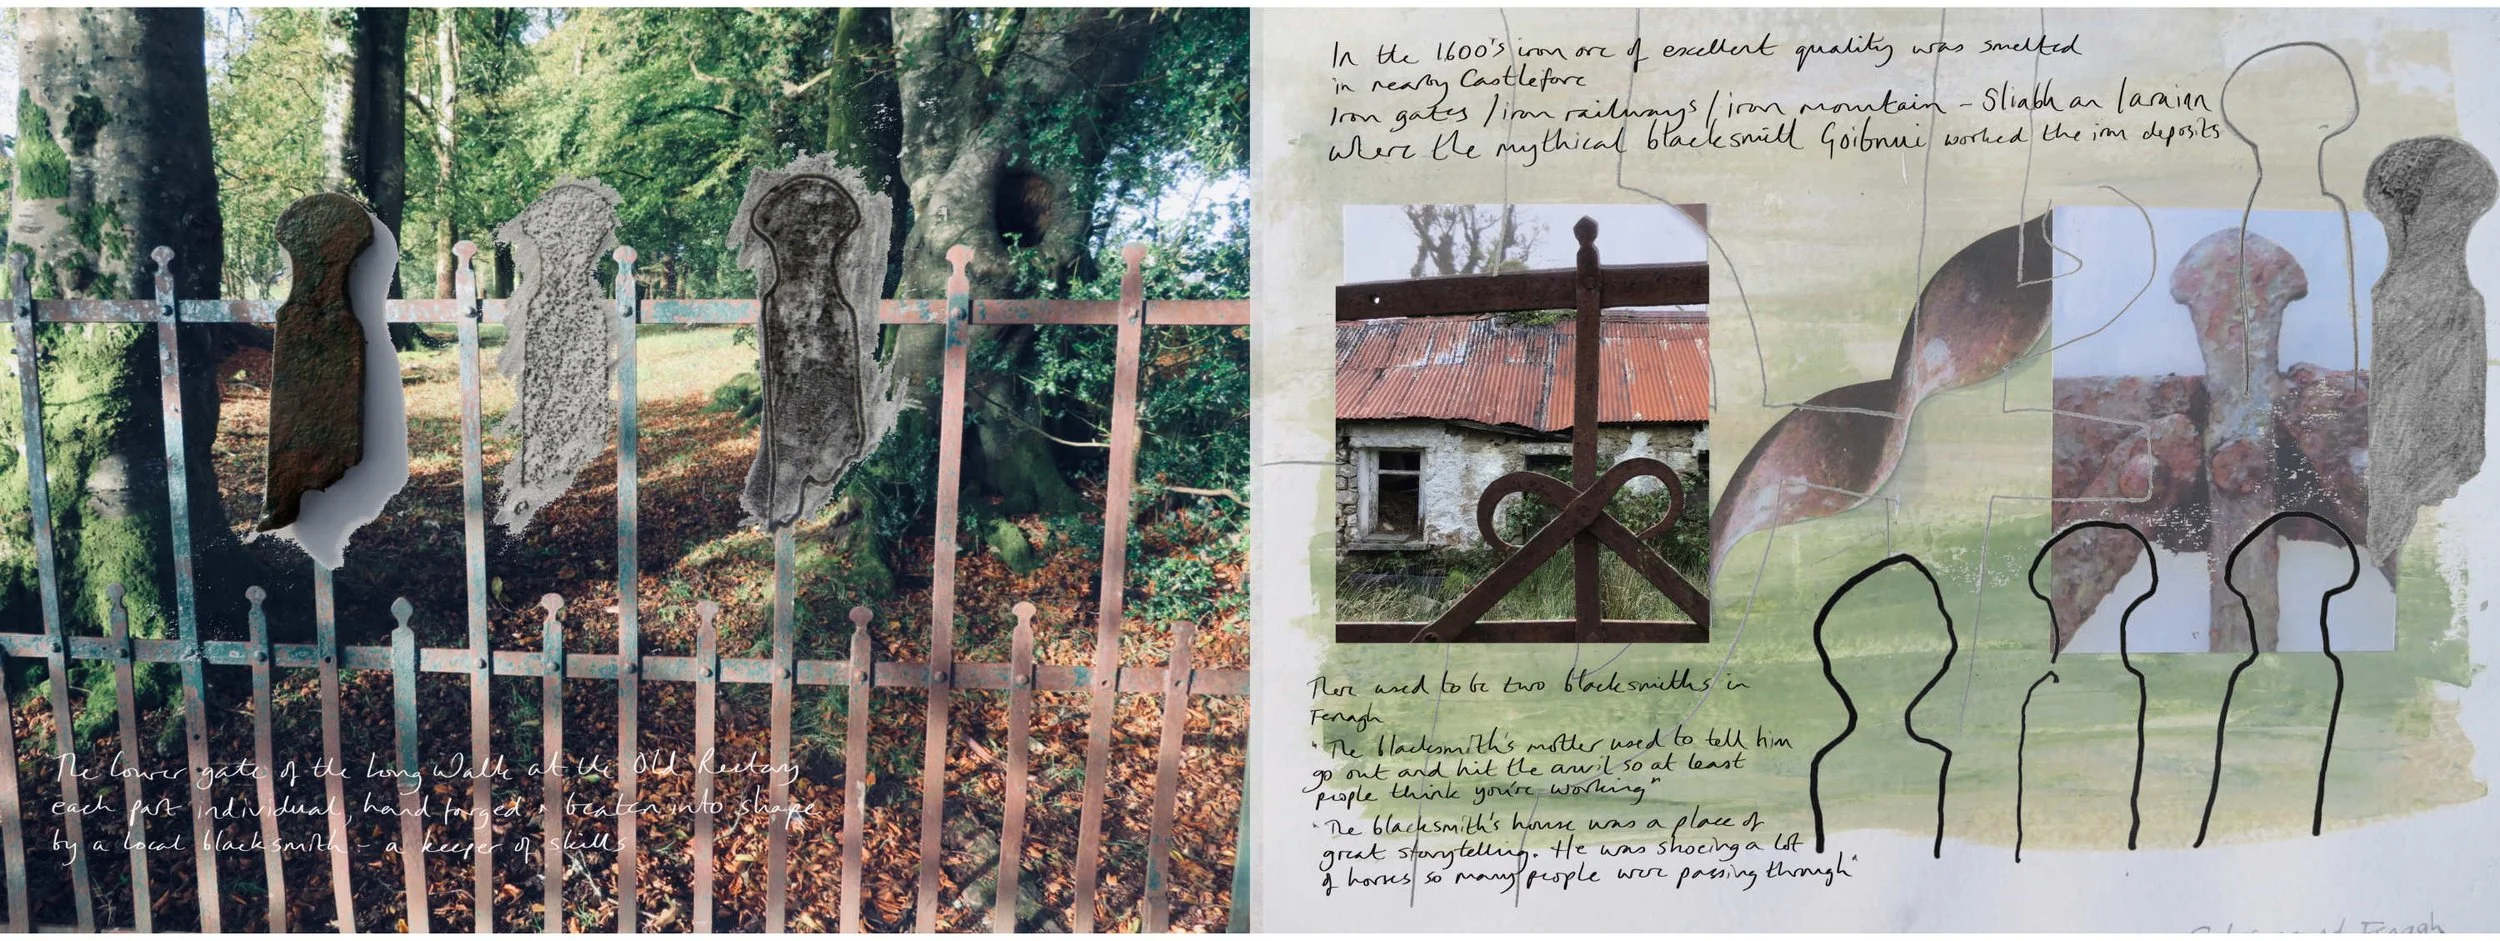 The lower gate of the Long Walk at the Old Rectory
each part individual, hand forged & beaten into shape
by a local blacksmith - a keeper of skills
In the 1600's iron ore of excellent quality was smelted
in nearby Castlefore
Iron gates / iron railways / iron mountain - Sliabh an Iarainn
where the mythical blacksmith Goibnui worked the iron deposits
There used to be two blacksmiths in
Fenagh
"The blacksmith's mother used to tell him
go out and hit the anvil so at least
people think you're working"
"The blacksmith's house was a place of
great storytelling. He was shoeing a lot
of horses so many people were passing through"
Fenagh